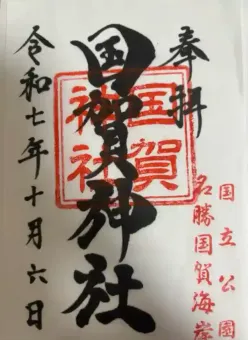 奉拝
国立公園
名勝国賀海岸
国賀神社
国賀神社
令和七年十月六日